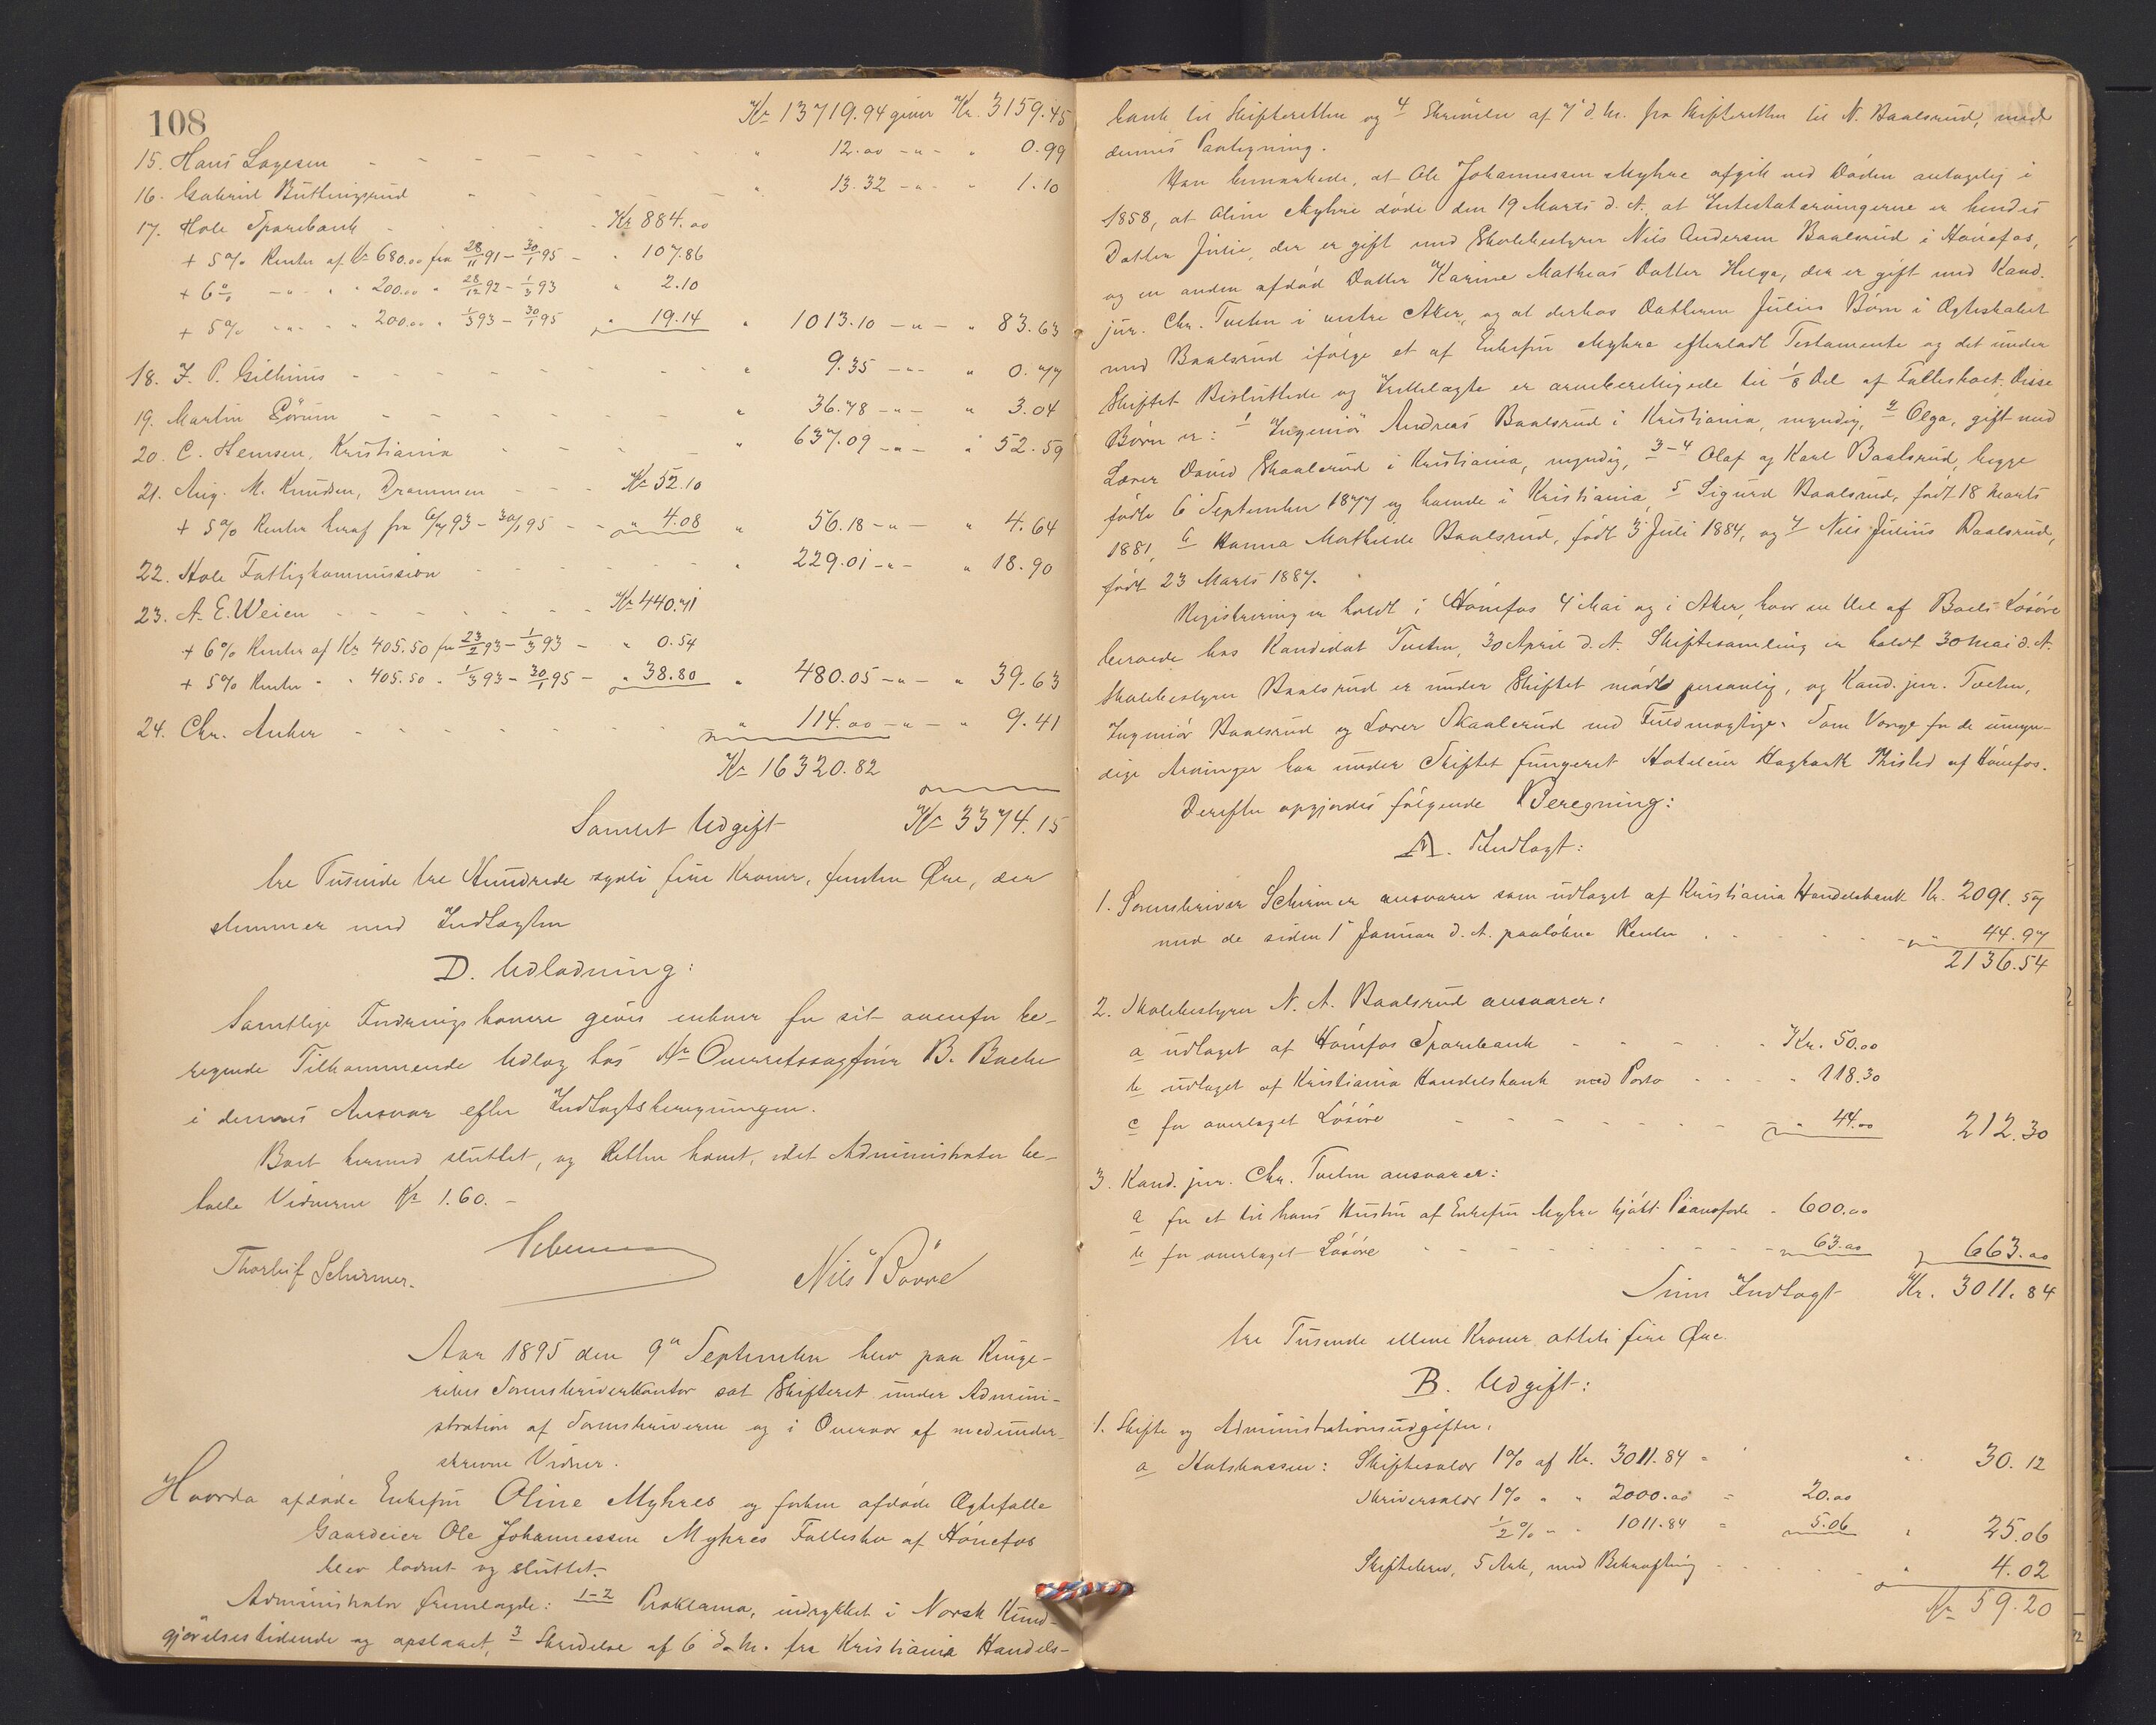 108
Kr 13719.94 giver Kr. 3159.45
15. Hans Lagesen - - - " 12.00 -"- " 0.99
16. Gabriel Büttingsrud - - - " 13.32 -"- " 1.10
17. Hole Sparebank - - Kr 884.00
+ 5% Renter af Kr 680.00 fra 28/11 91 - 30/1 95 - " 107.86
+ 6% -"- " " 200.00 " 28/12 92 - 1/3 93 " 2.10
+ 5% -"- " " 200.00 " 1/3 93 - 30/1 95 " 19.14 " 1013.10 -"- " 83.63
18. J. P. Gilhuus - - - " 9.35 -"- " 0.77
19. Martin Sørum - - - " 36.78 -"- " 3.04
20. C. Hemsen, Kristiania - - - " 637.09 -"- " 52.59
21. Aug. M. Knudsen, Drammen - - - Kr 52.10
+ 5% Renter heraf fra 6/7 93 - 30/1 95 - - " 4.08 " 56.18 -"- " 4.64
22. Hole Fattigkommission - - - " 229.01 -"- " 18.90
23. A. E. Weien - - - Kr 440.71
+ 6% Renter af Kr 405.50 fra 23/2 93 - 1/3 93 - " 0.54
+ 5% Renter " " 405.50 " 1/3 93 - 30/1 95 - " 38.80 " 480.05 -"- " 39.63
24. Chr. Anker - - - " 114.00 -"- " 9.41
Kr 16320.82
Samlet Udgift Kr 3374.15
tre Tusinde tre Hundrede sytti fire Kroner, femten Øre, der
stemmer med Indtægten
D. Udlodning:
Samtlige Fordringshavere gives enhver for sit ovenfor be-
regnede Tilkommende Udlæg hos Hr Overretssagfører B. Bache
i dennes Ansvar efter Indtægtsberegningen.
Boet hermed sluttet, og Retten hævet, idet Administrator be-
talte Vidnerne Kr 1.60. -
Thorleif Schirmer. Schirmer Nils Børre
Aar 1895 den 9de September blev paa Ringe-
rikes Sorenskriverkontor sat Skifteret under Admini-
stration af Sorenskriveren og i Overvær af medunder-
skrevne Vidner.
Hvorda afdøde Enkefru Oline Myhres og forhen afdøde Ægtefælle
Gaardeier Ole Johannessen Myhres Fællesbo af Hønefos
blev lodnet og sluttet.
Administrator fremlagde: 1-2 Proklama, indrykket i Norsk Kund-
gjørelsestidende og opslaaet, 3 Skrivelse af 6 d. M. fra Kristiania Handels-
bank til Skifteretten og 4 Skrivelse af 7 d. M. fra Skifteretten til N. Baalsrud, med
dennes Paategning.
Han bemærkede, at Ole Johannessen Myhre afgik ved Døden antagelig i
1858, at Oline Myhre døde den 19 Marts d. A., at Intestatarvingerne er hendes
Datter Julie, der er gift med Skolebestyrer Nils Andersen Baalsrud i Hønefos,
og en anden afdød Datter Karine Mathias Datter Helga, der er gift med Kand.
jur. Chr. Tveten i vestre Aker, og at derhos Datteren Julies Børn i Ægteskabet
med Baalsrud ifølge et af Enkefru Myhre efterladt Testamente og det under
Skiftet Besluttede og Fremlagte er arveberettigede til 1/8 Del af Fællesboet. Disse
Børn er: 1 Ingeniør Andreas Baalsrud i Kristiania, myndig, 2 Olga, gift med
Lærer David Skaalerud i Kristiania, myndig, 3-4 Olaf og Karl Baalsrud, begge
fødte 6 September 1877 og boende i Kristiania, 5 Sigurd Baalsrud, født 18 Marts
1881, 6 Hanna Mathilde Baalsrud, født 3 Juli 1884, og 7 Nils Julius Baalsrud,
født 23 Marts 1887.
Registrering er holdt i Hønefos 4 Mai og i Aker, hvor en Del af Boets Løsøre
beroede hos Kandidat Tveten, 30 April d. A. Skiftesamling er holdt 30 Mai d. A.
Skolebestyrer Baalsrud er under Skiftet mødt personlig, og Kand. jur. Tveten,
Ingeniør Baalsrud og Lærer Skaalerud ved Fuldmægtige. Som Værge for de umyn-
dige Arvinger har under Skiftet fungeret Hoteleier Haghank Thisled af Hønefos.
Derefter opgjordes følgende Beregning:
A. Indtægt:
1. Sorenskriver Schirmer ansvarer som udtaget af Kristiania Handelsbank Kr. 2091.57
med de siden 1 Januar d. A. paaløbne Renter - - - " 44.97
2136.54
2. Skolebestyrer N. A. Baalsrud ansvarer:
a udtaget af Hønefos Sparebank - - - Kr. 50.00
b udtaget af Kristiania Handelsbank med Porto - - " 118.30
c for overtaget Løsøre - - - " 44.00 212.30
3. Kand. jur. Chr. Tveten ansvarer:
a for et til hans Hustru af Enkefru Myhre kjøbt Pianoforte - 600.00
b for overtaget Løsøre - - - " 63.00 " 663.00
Sum Indtægt Kr. 3011.84
tre Tusinde elleve Kroner otteti fire Øre.
B. Udgift:
1. Skifte og Administrationsudgifter.
a Statskassen: Skiftesalær 1% af Kr. 3011.84 = " 30.12
Skriversalær 1% " " 2000.00 = 20.00
1/2% " " 1011.84 = 5.06 " 25.06
Skiftebrev, 5 Ark, med Bekræftning - - - " 4.02
Kr 59.20